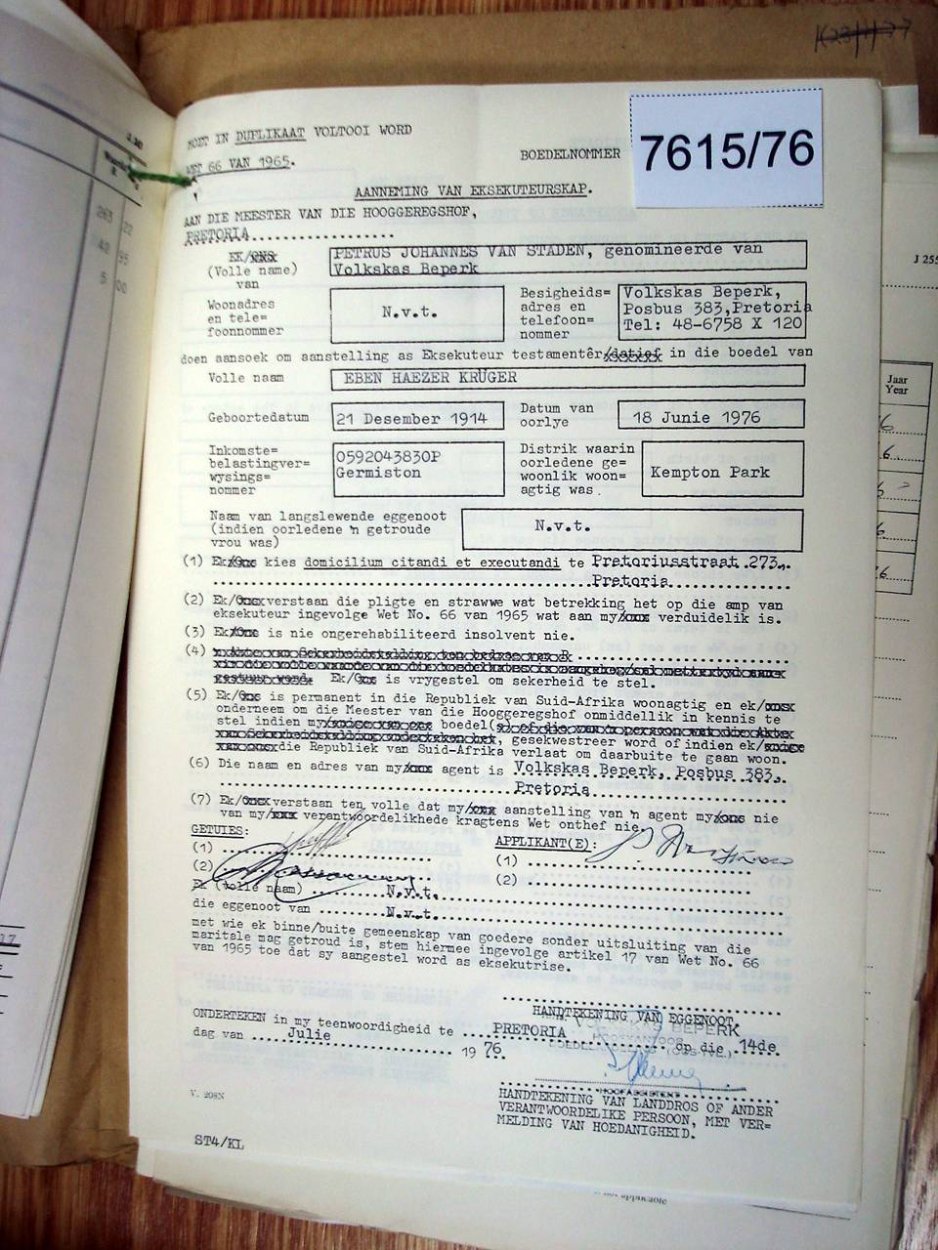 K23/1/37
MOET IN DUPLIKAAT VOLTOOI WORD
WET 66 VAN 1965.
BOEDELNOMMER 7615/76
AANNEMING VAN EKSEKUTEURSKAP.
AAN DIE MEESTER VAN DIE HOOGGEREGSHOF,
PRETORIA
EK/ONS
(Volle name)
van
PETRUS JOHANNES VAN STADEN, genomineerde van
Volkskas Beperk
Woonadres
en tele=
foonnommer
N.v.t.
Besigheids=
adres en
telefoon=
nommer
Volkskas Beperk,
Posbus 383,Pretoria
Tel: 48-6758 X 120
doen aansoek om aanstelling as Eksekuteur testamentêr/datief in die boedel van
Volle naam
EBEN HAEZER KRUGER
Geboortedatum
21 Desember 1914
Datum van
oorlye
18 Junie 1976
Inkomste=
belastingver=
wysings=
nommer
0592043830P
Germiston
Distrik waarin
oorledene ge=
woonlik woon=
agtig was.
Kempton Park
Naam van langslewende eggenoot
(indien oorledene 'n getroude
vrou was)
N.v.t.
(1) Ek/Ons kies domicilium citandi et executandi te Pretoriusstraat 273,
Pretoria
(2) Ek/Ons verstaan die pligte en strawwe wat betrekking het op die amp van
eksekuteur ingevolge Wet No. 66 van 1965 wat aan my/ons verduidelik is.
(3) Ek/Ons is nie ongerehabiliteerd insolvent nie.
(4)
Ek/Ons is vrygestel om sekerheid te stel.
(5) Ek/Ons is permanent in die Republiek van Suid-Afrika woonagtig en ek/ons
onderneem om die Meester van die Hooggeregshof onmiddellik in kennis te
stel indien my boedel
gesekwestreer word of indien ek
die Republiek van Suid-Afrika verlaat om daarbuite te gaan woon.
(6) Die naam en adres van my/ons agent is Volkskas Beperk, Posbus 383,
Pretoria
(7) Ek/Ons verstaan ten volle dat my/ons aanstelling van 'n agent my/ons nie
van my/ons verantwoordelikhede kragtens Wet onthef nie.
GETUIES:
APPLIKANT(E):
(1)
(1)
(2)
(2)
Ek (volle naam) N.v.t.
die eggenoot van N.v.t.
met wie ek binne/buite gemeenskap van goedere sonder uitsluiting van die
maritale mag getroud is, stem hiermee ingevolge artikel 17 van Wet No. 66
van 1965 toe dat sy aangestel word as eksekutrise.
HANDTEKENING VAN EGGENOOT
BEPERK
ONDERTEKEN in my teenwoordigheid te PRETORIA op die 14de
dag van Julie 19 76.
HANDTEKENING VAN LANDDROS OF ANDER
VERANTWOORDELIKE PERSOON, MET VER=
MELDING VAN HOEDANIGHEID.
V. 208N
ST4/KL
J 255
Jaar
Year
263 22
42 95
5 00